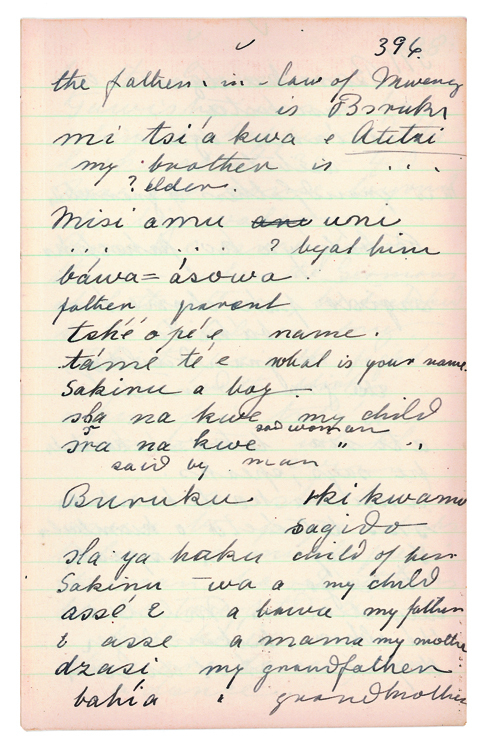 396
the father-in-law of Mweng
is Buruku
mi tsi a kwa e Atitai
my brother is ...
? elder.
Misi amu uni
... .. ? begat him
báwa = ásowa.
father parent
tské o pé é name.
támé té e what is your name
Sakinu a boy
sla na kwe my child
said woman
sra na kwe " ..
said by man
Buruku
sagido
sla ya haku child of him
Sakinu - wa a my child
assé ɛ a bawa my father
ɛ asse a mama my mothe
dzasi my grandfather
bahía " grandmother